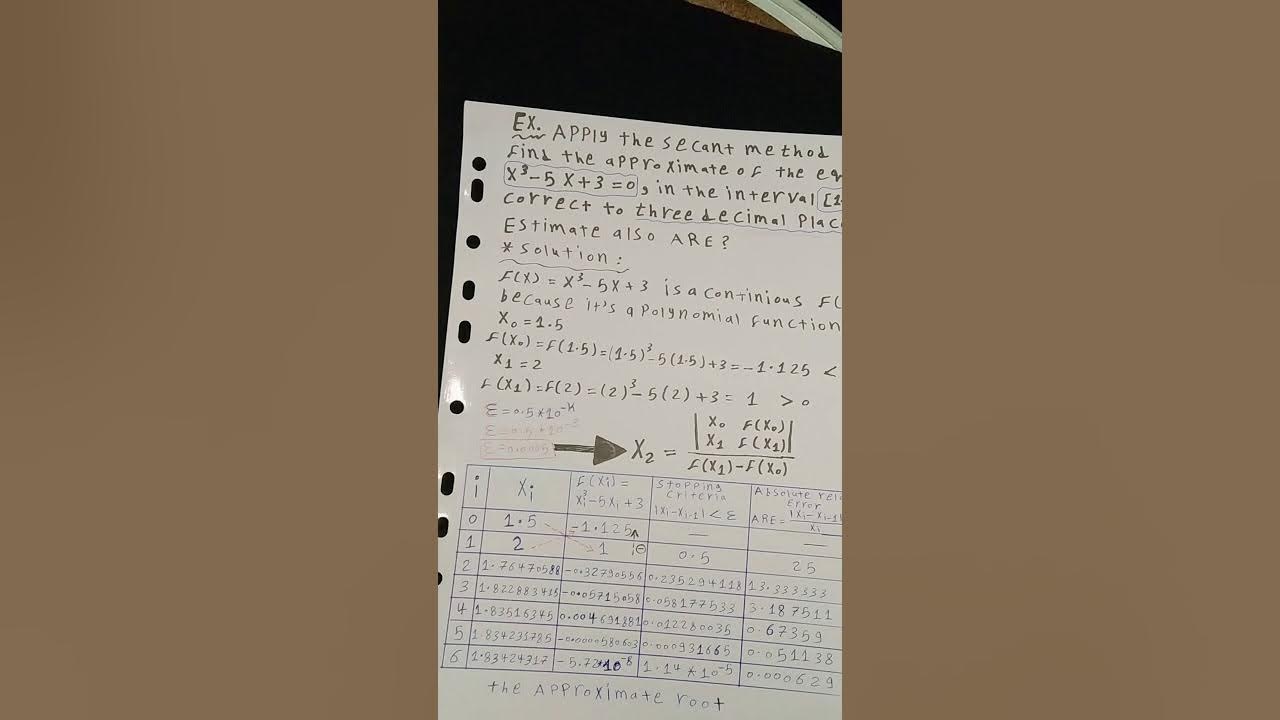 EX. APPly the secant method
Find the approximate of the eq
X³-5X+3=0, in the interval [1
correct to three decimal Plac
Estimate also ARE?
*solution:
F(X)=X³-5X+3 is a continious F(
because it's a Polynomial function
X₀=1.5
F(X₀)=F(1.5)=(1.5)³-5(1.5)+3=-1.125 <
X₁=2
F(X₁)=F(2)=(2)³-5(2)+3= 1 >0
ε=0.5*10⁻ᴷ
ε=0.5*10⁻³
ε=0.0005
X₂ = |X₀ F(X₀) X₁ F(X₁)| / F(X₁)-F(X₀)
i Xi F(Xi)= Xi³-5Xi+3 Stopping criteria |Xi-Xi-1|<ε Absolute rela Error ARE=|Xi-Xi-1| Xi
0 1.5 -1.125 — —
1 2 1 0.5 25
2 1.76470588 -0.32790556 0.235294118 13.333333
3 1.822883415 -0.05715058 0.058177533 3.187511
4 1.83516345 0.004691881 0.012280035 0.67359
5 1.834231785 -0.0000580603 0.000931665 0.051138
6 1.83424317 -5.72*10⁻⁸ 1.14*10⁻⁵ 0.000629
the APProximate root